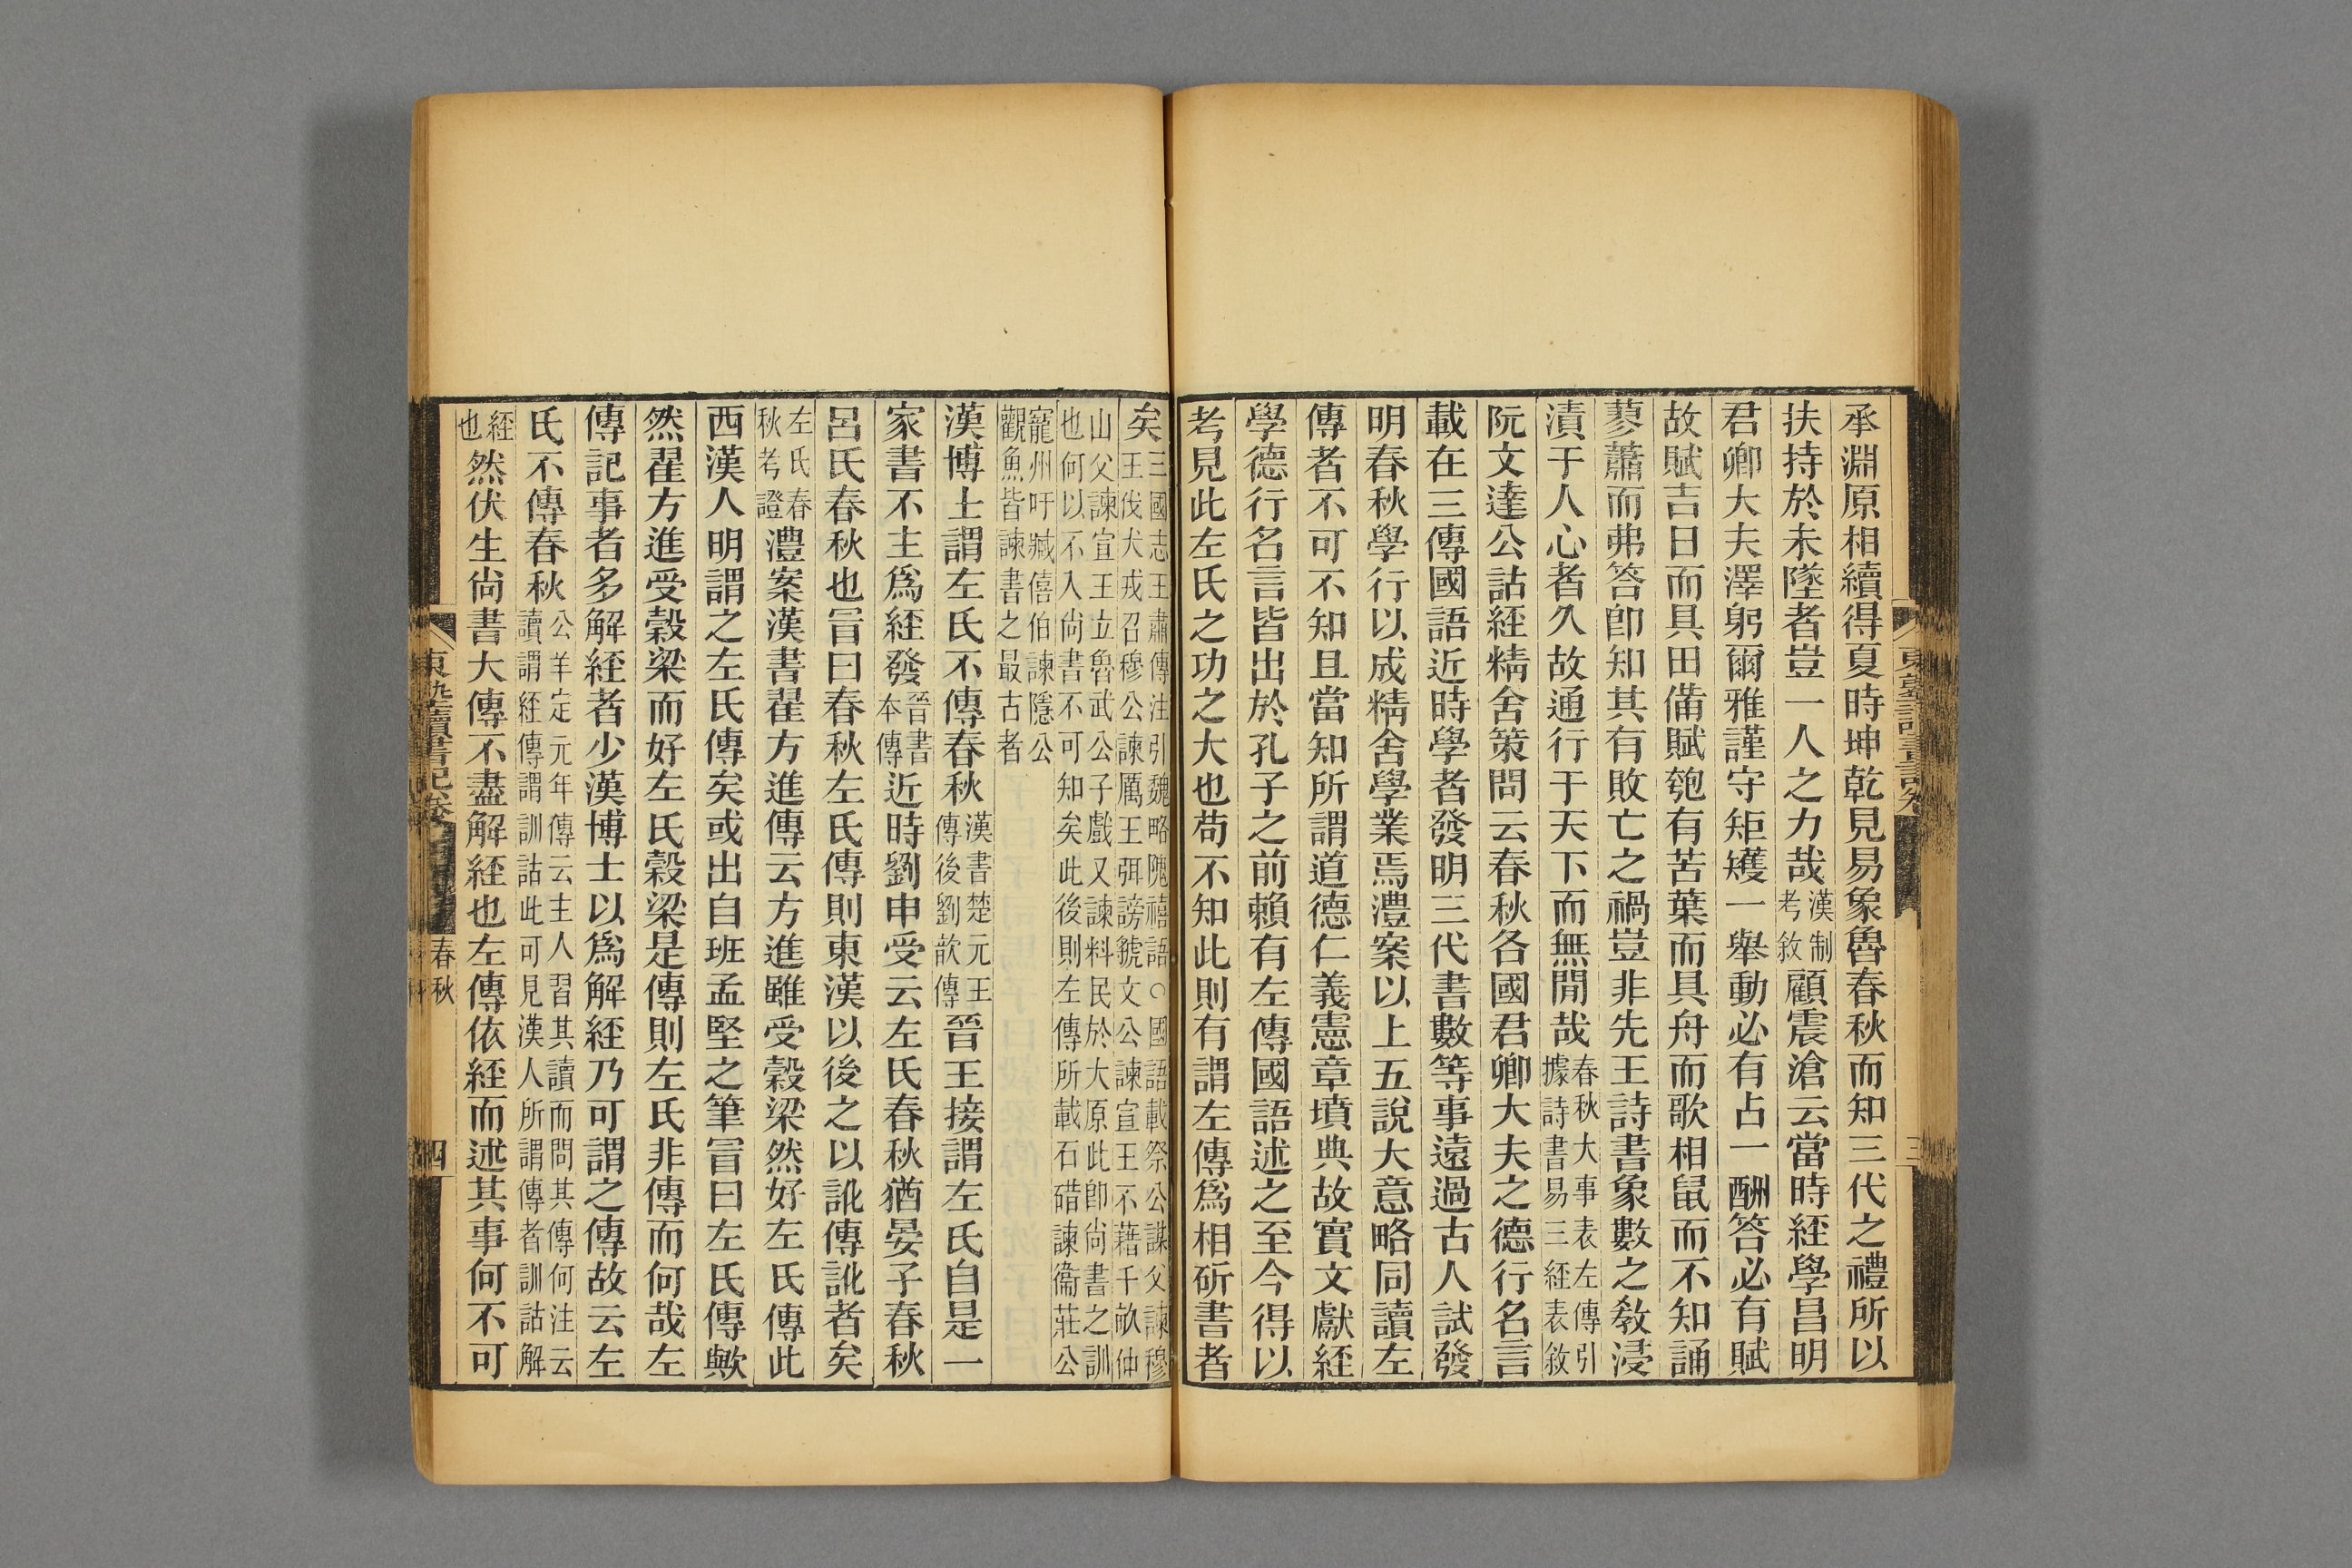 承淵原相續得夏時坤乾見易象魯春秋而知三代之禮所以
扶持於未墜者豈一人之力哉漢制考敘顧震滄云當時経學昌明
君卿大夫澤躬爾雅謹守矩矱一舉動必有占一酬答必有賦
故賦吉日而具田備賦匏有苦葉而具舟而歌相鼠而不知誦
蓼蕭而弗答卽知其有敗亡之禍豈非先王詩書象數之教浸
漬于人心者久故通行于天下而無閒哉春秋大事表左傳引據詩書易三経表敘
阮文達公詁経精舍策問云春秋各國君卿大夫之德行名言
載在三傳國語近時學者發明三代書數等事遠過古人試發
明春秋學行以成精舍學業焉澧案以上五說大意略同讀左
傳者不可不知且當知所謂道德仁義憲章墳典故實文獻経
學德行名言皆出於孔子之前賴有左傳國語述之至今得以
考見此左氏之功之大也苟不知此則有謂左傳爲相斫書者
矣三國志王肅傳注引魏略隗禧語○國語載祭公謀父諫穆王伐犬戎召穆公諫厲王弭謗虢文公諫宣王不藉千畝仲
山父諫宣王立魯武公子戲又諫料民於大原此卽尚書之訓也何以不入尚書不可知矣此後則左傳所載石碏諫衞莊公
寵州吁臧僖伯諫隱公觀魚皆諫書之最古者
漢博士謂左氏不傳春秋漢書楚元王傳後劉歆傳晉王接謂左氏自是一
家書不主爲経發晉書本傳近時劉申受云左氏春秋猶晏子春秋
呂氏春秋也冒曰春秋左氏傳則東漢以後之以訛傳訛者矣
左氏春秋考證澧案漢書翟方進傳云方進雖受穀梁然好左氏傳此
西漢人明謂之左氏傳矣或出自班孟堅之筆冒曰左氏傳歟
然翟方進受穀梁而好左氏穀梁是傳則左氏非傳而何哉左
傳記事者多解経者少漢博士以爲解経乃可謂之傳故云左
氏不傳春秋公羊定元年傳云主人習其讀而問其傳何注云讀謂経傳謂訓詁此可見漢人所謂傳者訓詁解
経也然伏生尚書大傳不盡解経也左傳依経而述其事何不可
東塾讀書記卷
春秋
四